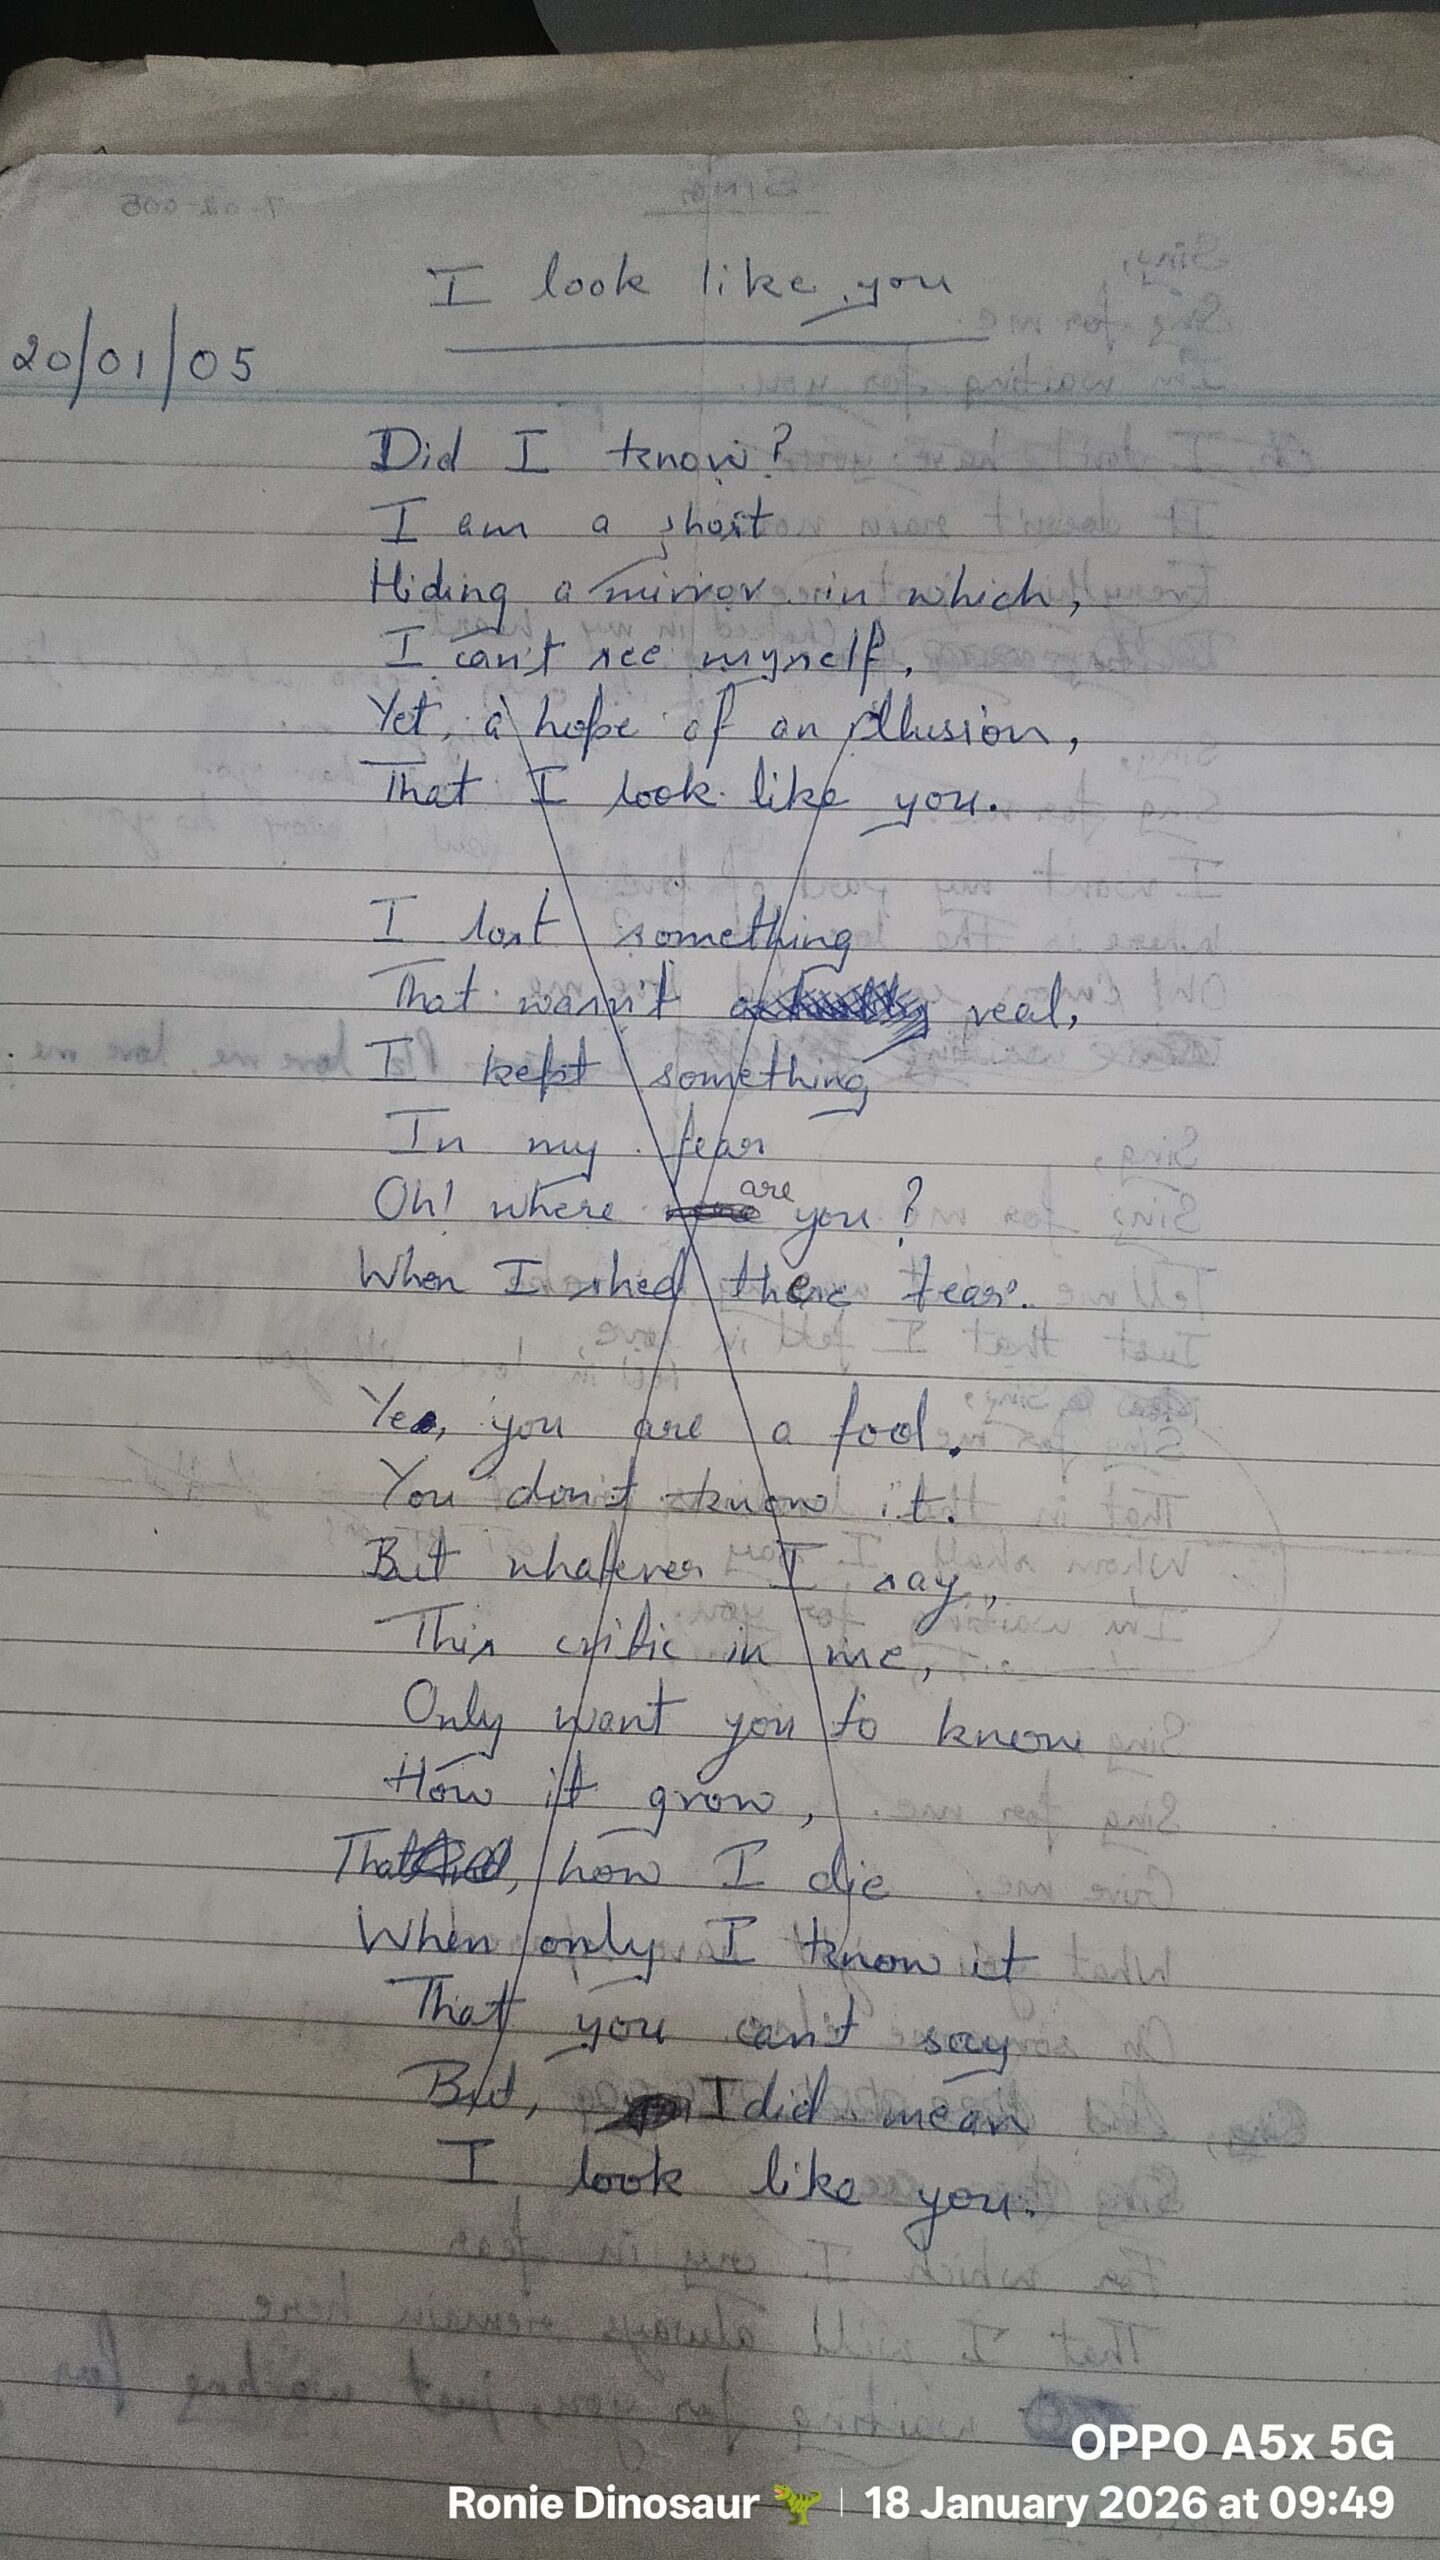 I look like you
20/01/05
Did I know?
I am a ghost
Hiding a mirror in which,
I can't see myself,
Yet, a hope of an illusion,
That I look like you.
I lost something
That wasn't actually real,
I kept something
In my fear
Oh! where are you?
When I shed these tear.
Yes, you are a fool.
You don't know it.
But whatever I say,
This critic in me,
Only want you to know
How it grow,
That, how I die
When only I know it
That you can't say
But, I did mean
I look like you.
OPPO A5x 5G
Ronie Dinosaur 🦖 | 18 January 2026 at 09:49